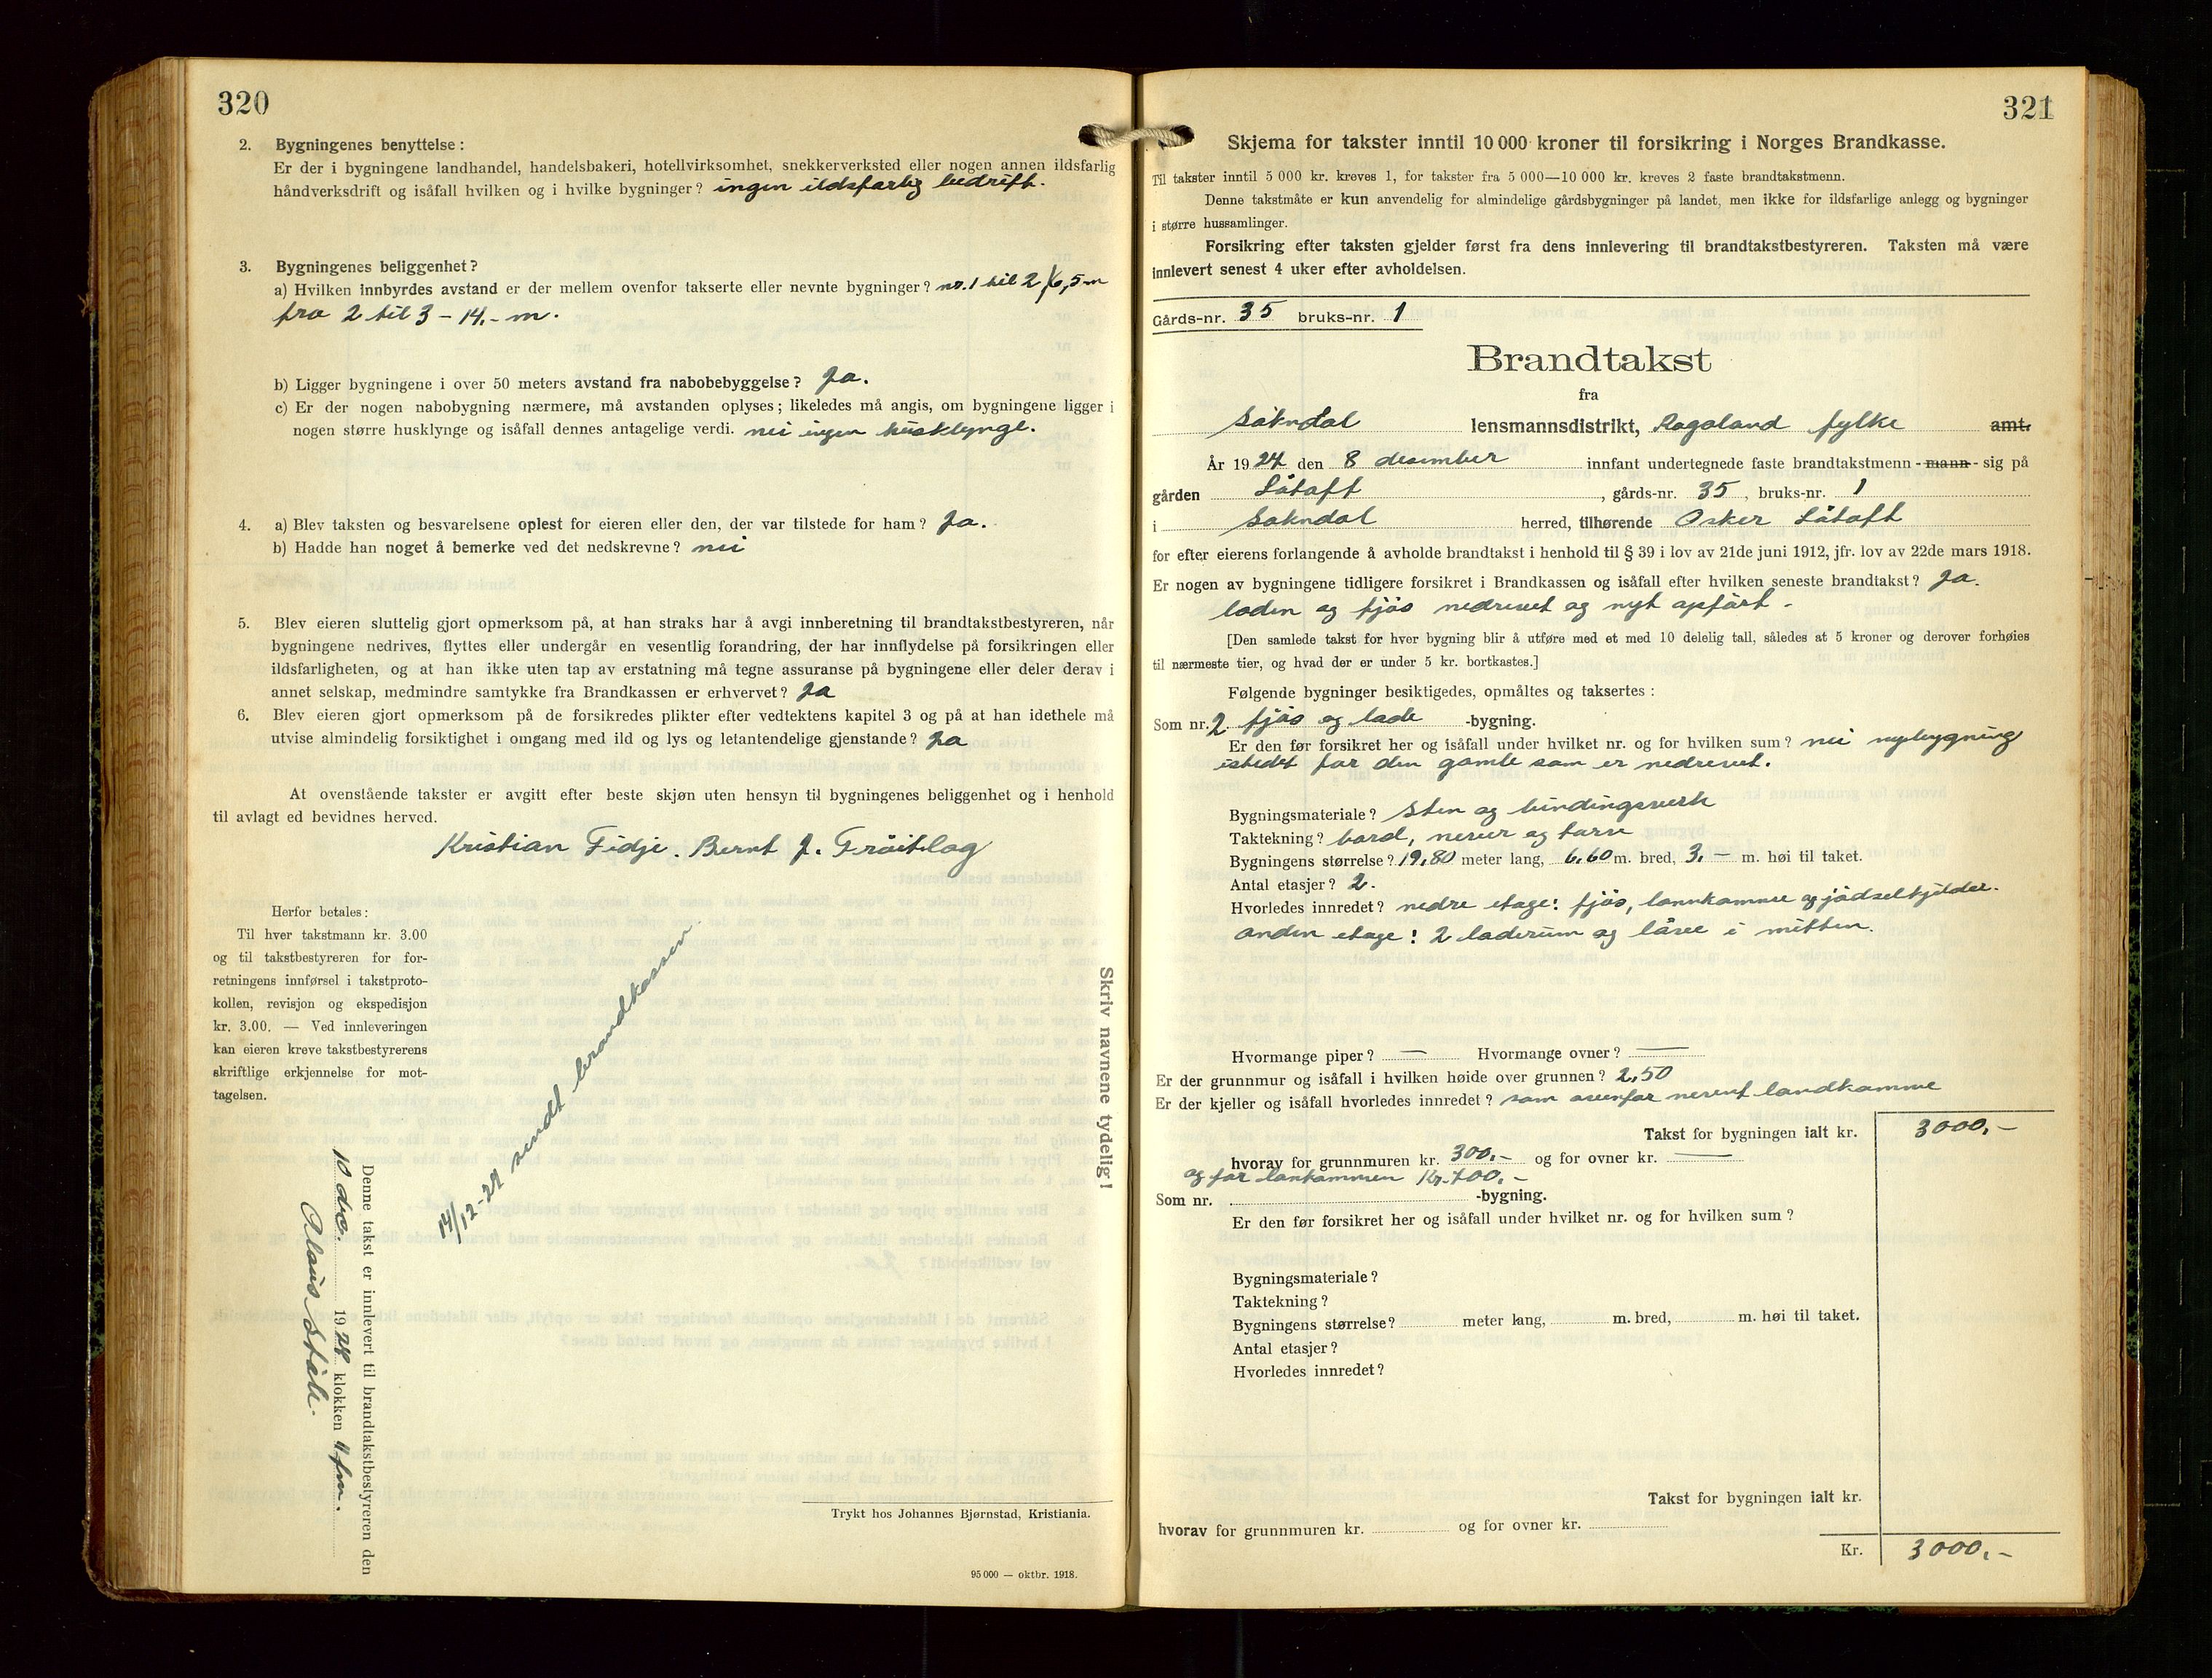 320
2. Bygningenes benyttelse:
Er der i bygningene landhandel, handelsbakeri, hotellvirksomhet, snekkerverksted eller nogen annen ildsfarlig
håndverksdrift og isåfall hvilken og i hvilke bygninger? ingen ildsfarlig bedrift.
3. Bygningenes beliggenhet?
a) Hvilken innbyrdes avstand er der mellem ovenfor takserte eller nevnte bygninger? nr. 1 til 2 16,5 m
fra 2 til 3 - 14,- m.
b) Ligger bygningene i over 50 meters avstand fra nabobebyggelse? Ja.
c) Er der nogen nabobygning nærmere, må avstanden oplyses; likeledes må angis, om bygningene ligger i
nogen større husklynge og isåfall dennes antagelige verdi. nei ingen husklynge.
4. a) Blev taksten og besvarelsene oplest for eieren eller den, der var tilstede for ham? Ja.
b) Hadde han noget å bemerke ved det nedskrevne? nei
5. Blev eieren sluttelig gjort opmerksom på, at han straks har å avgi innberetning til brandtakstbestyreren, når
bygningene nedrives, flyttes eller undergår en vesentlig forandring, der har innflydelse på forsikringen eller
ildsfarligheten, og at han ikke uten tap av erstatning må tegne assuranse på bygningene eller deler derav i
annet selskap, medmindre samtykke fra Brandkassen er erhvervet? Ja
6. Blev eieren gjort opmerksom på de forsikredes plikter efter vedtektens kapitel 3 og på at han idethele må
utvise almindelig forsiktighet i omgang med ild og lys og letantendelige gjenstande? Ja
At ovenstående takster er avgitt efter beste skjøn uten hensyn til bygningenes beliggenhet og i henhold
til avlagt ed bevidnes herved.
Kristian Fidje. Bernt J. Fröitlog
Herfor betales:
Til hver takstmann kr. 3.00
og til takstbestyreren for for-
retningens innførsel i takstproto-
kollen, revisjon og ekspedisjon
kr. 3.00. — Ved innleveringen
kan eieren kreve takstbestyrerens
skriftlige erkjennelse for mot-
tagelsen.
14/12-24 sendt brandkassen.
Skriv navnene tydelig!
Denne takst er innlevert til brandtakstbestyreren den
10 dec. 1924 klokken 4 fm.
Olaus Ståle.
Trykt hos Johannes Bjørnstad, Kristiania.
95 000 — oktbr. 1918.
321
Skjema for takster inntil 10 000 kroner til forsikring i Norges Brandkasse.
Til takster inntil 5 000 kr. kreves 1, for takster fra 5 000—10 000 kr. kreves 2 faste brandtakstmenn.
Denne takstmåte er kun anvendelig for almindelige gårdsbygninger på landet, men ikke for ildsfarlige anlegg og bygninger
i større hussamlinger.
Forsikring efter taksten gjelder først fra dens innlevering til brandtakstbestyreren. Taksten må være
innlevert senest 4 uker efter avholdelsen.
Gårds-nr. 35 bruks-nr. 1
Brandtakst
fra
Sokndal lensmannsdistrikt, Rogaland fylke amt.
År 1924 den 8 desember innfant undertegnede faste brandtakstmenn - mann - sig på
gården Låtoft, gårds-nr. 35, bruks-nr. 1
i Sokndal herred, tilhørende Osker Låtoft
for efter eierens forlangende å avholde brandtakst i henhold til § 39 i lov av 21de juni 1912, jfr. lov av 22de mars 1918.
Er nogen av bygningene tidligere forsikret i Brandkassen og isåfall efter hvilken seneste brandtakst? Ja.
loden og fjös nedrevet og nyt opfört -
[Den samlede takst for hver bygning blir å utføre med et med 10 delelig tall, således at 5 kroner og derover forhøies
til nærmeste tier, og hvad der er under 5 kr. bortkastes.]
Følgende bygninger besiktigedes, opmåltes og taksertes:
Som nr. 2. fjös og lade -bygning.
Er den før forsikret her og isåfall under hvilket nr. og for hvilken sum? nei nybygning
istedet for den gamle som er nedrevet.
Bygningsmateriale? Sten og bindingsverk
Taktekning? bord, never og torv
Bygningens størrelse? 19,80 meter lang, 6,60 m. bred, 3,— m. høi til taket.
Antal etasjer? 2.
Hvorledes innredet? nedre etage: fjös, lonnkammer og jödselkjelder.
anden etage: 2 laderum og låve i mitten.
Hvormange piper? — Hvormange ovner? —
Er der grunnmur og isåfall i hvilken høide over grunnen? 2,50
Er der kjeller og isåfall hvorledes innredet? som ovenfor nevnt landkamme
Takst for bygningen ialt kr. 3000,-
hvorav for grunnmuren kr. 300,- og for ovner kr. —
og for lonkammen Kr. 700,-
Som nr. -bygning.
Er den før forsikret her og isåfall under hvilket nr. og for hvilken sum?
Bygningsmateriale?
Taktekning?
Bygningens størrelse? meter lang, m. bred, m. høi til taket.
Antal etasjer?
Hvorledes innredet?
Takst for bygningen ialt kr.
hvorav for grunnmuren kr. og for ovner kr.
Kr. 3000,-